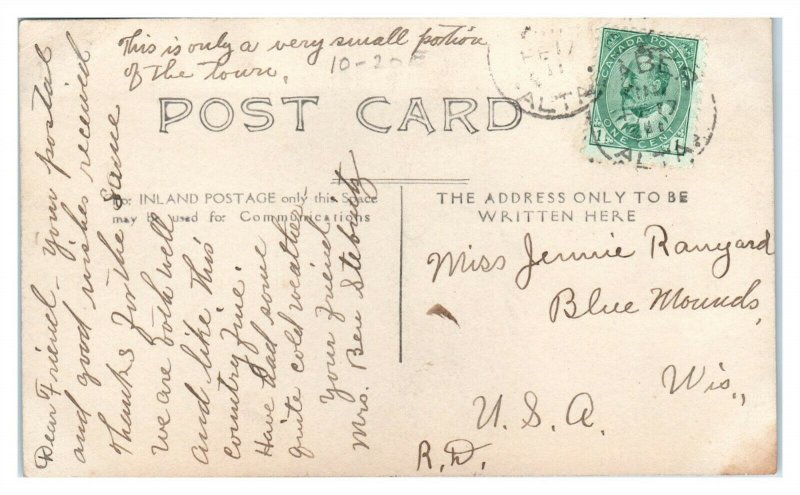 This is only a very small portion
of the town.
10-20
POST CARD
For INLAND POSTAGE only this Space
may be used for Communications
THE ADDRESS ONLY TO BE
WRITTEN HERE
Dear Friend - Your postal
and good wishes received
Thanks for the same
We are both well
and like this
country fine.
Have had some
quite cold weather
Your friend
Mrs. Ben
Miss Jennie Ranyard
Blue Mounds,
Wis,
U.S.A.
R.D.
CANADA POSTAGE
ONE CENT
1
TABER
ALTA
ALTA